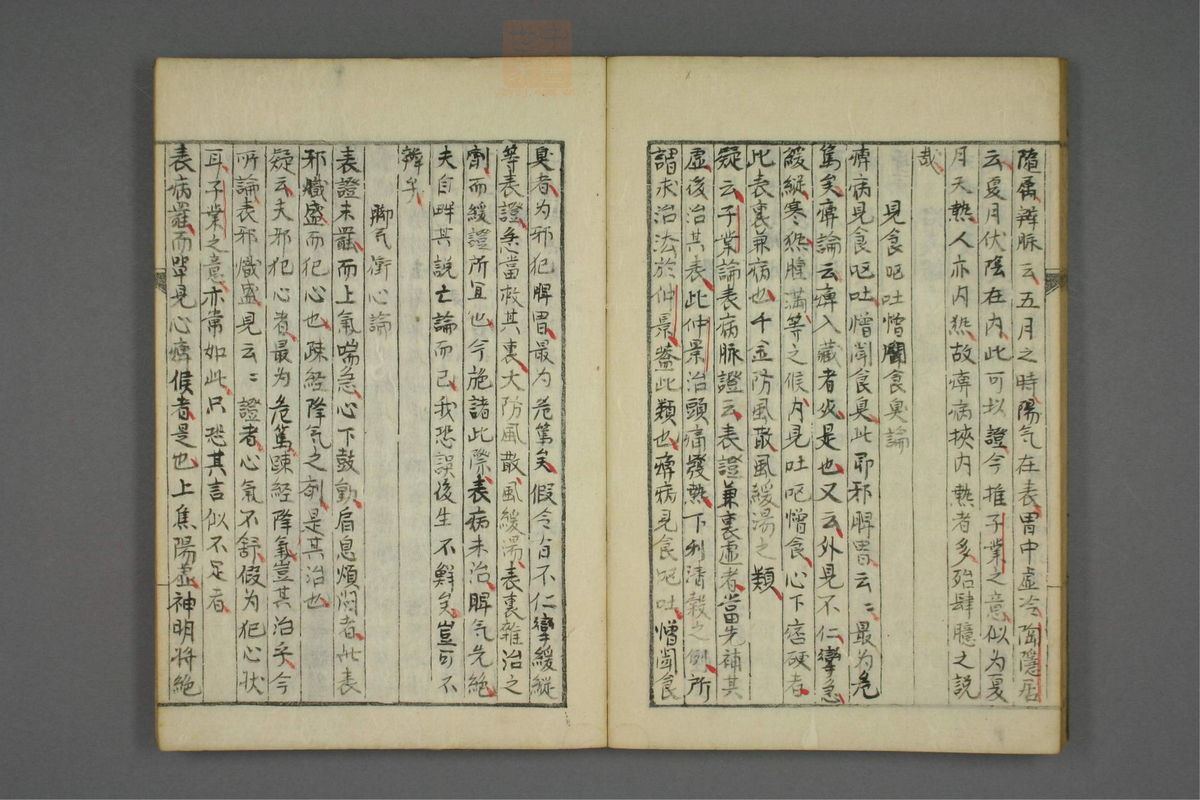 隋
辨脉云五月之時陽气在表胃中虚冷陶隱居
云夏月伏陰在内此可以證今推子業之意似为夏
月天熱人亦内然故痺病挾内熱者多殆肆臆之説
哉
見食呕吐憎聞食臭論
痺病見食呕吐憎闻食臭此耶邪脾胃云〻最为危
篤矣痺論云痺入藏者死是也又云外見不仁攣急
緩縱寒熱腫满等之候内見吐呕憎食心下痞硬者
此表裏兼病也千金防風散風緩湯之類
疑云子業論表病脉證云表證兼裏虚者當先補其
虚後治其表此仲景治頭痛發熱下利清穀之例所
謂求治法於仲景蓋此類也痺病見食呕吐憎闻食
臭者为邪犯脾胃最为危篤矣假令有不仁攣緩縱
等表證急當救其裏大防風散風緩湯表裏雜治之
劑而緩證所宜也今施諸此際表病未治脾气先絶
夫自畔其説亡論而已我恐誤後生不鮮矣豈可不
辨矣
脚气衝心論
表證未罷而上氣喘急心下鼓動肩息煩悶者此表
邪熾盛而犯心也疎經降气之劑是其治也
疑云夫邪犯心者最为危篤疎經降氣豈其治乎今
所論表邪熾盛見云〻證者心氣不舒假为犯心狀
耳子業之意亦常如此只恐其言似不足者
表病罷而單見心痺候者是也上焦陽虚神明将絶